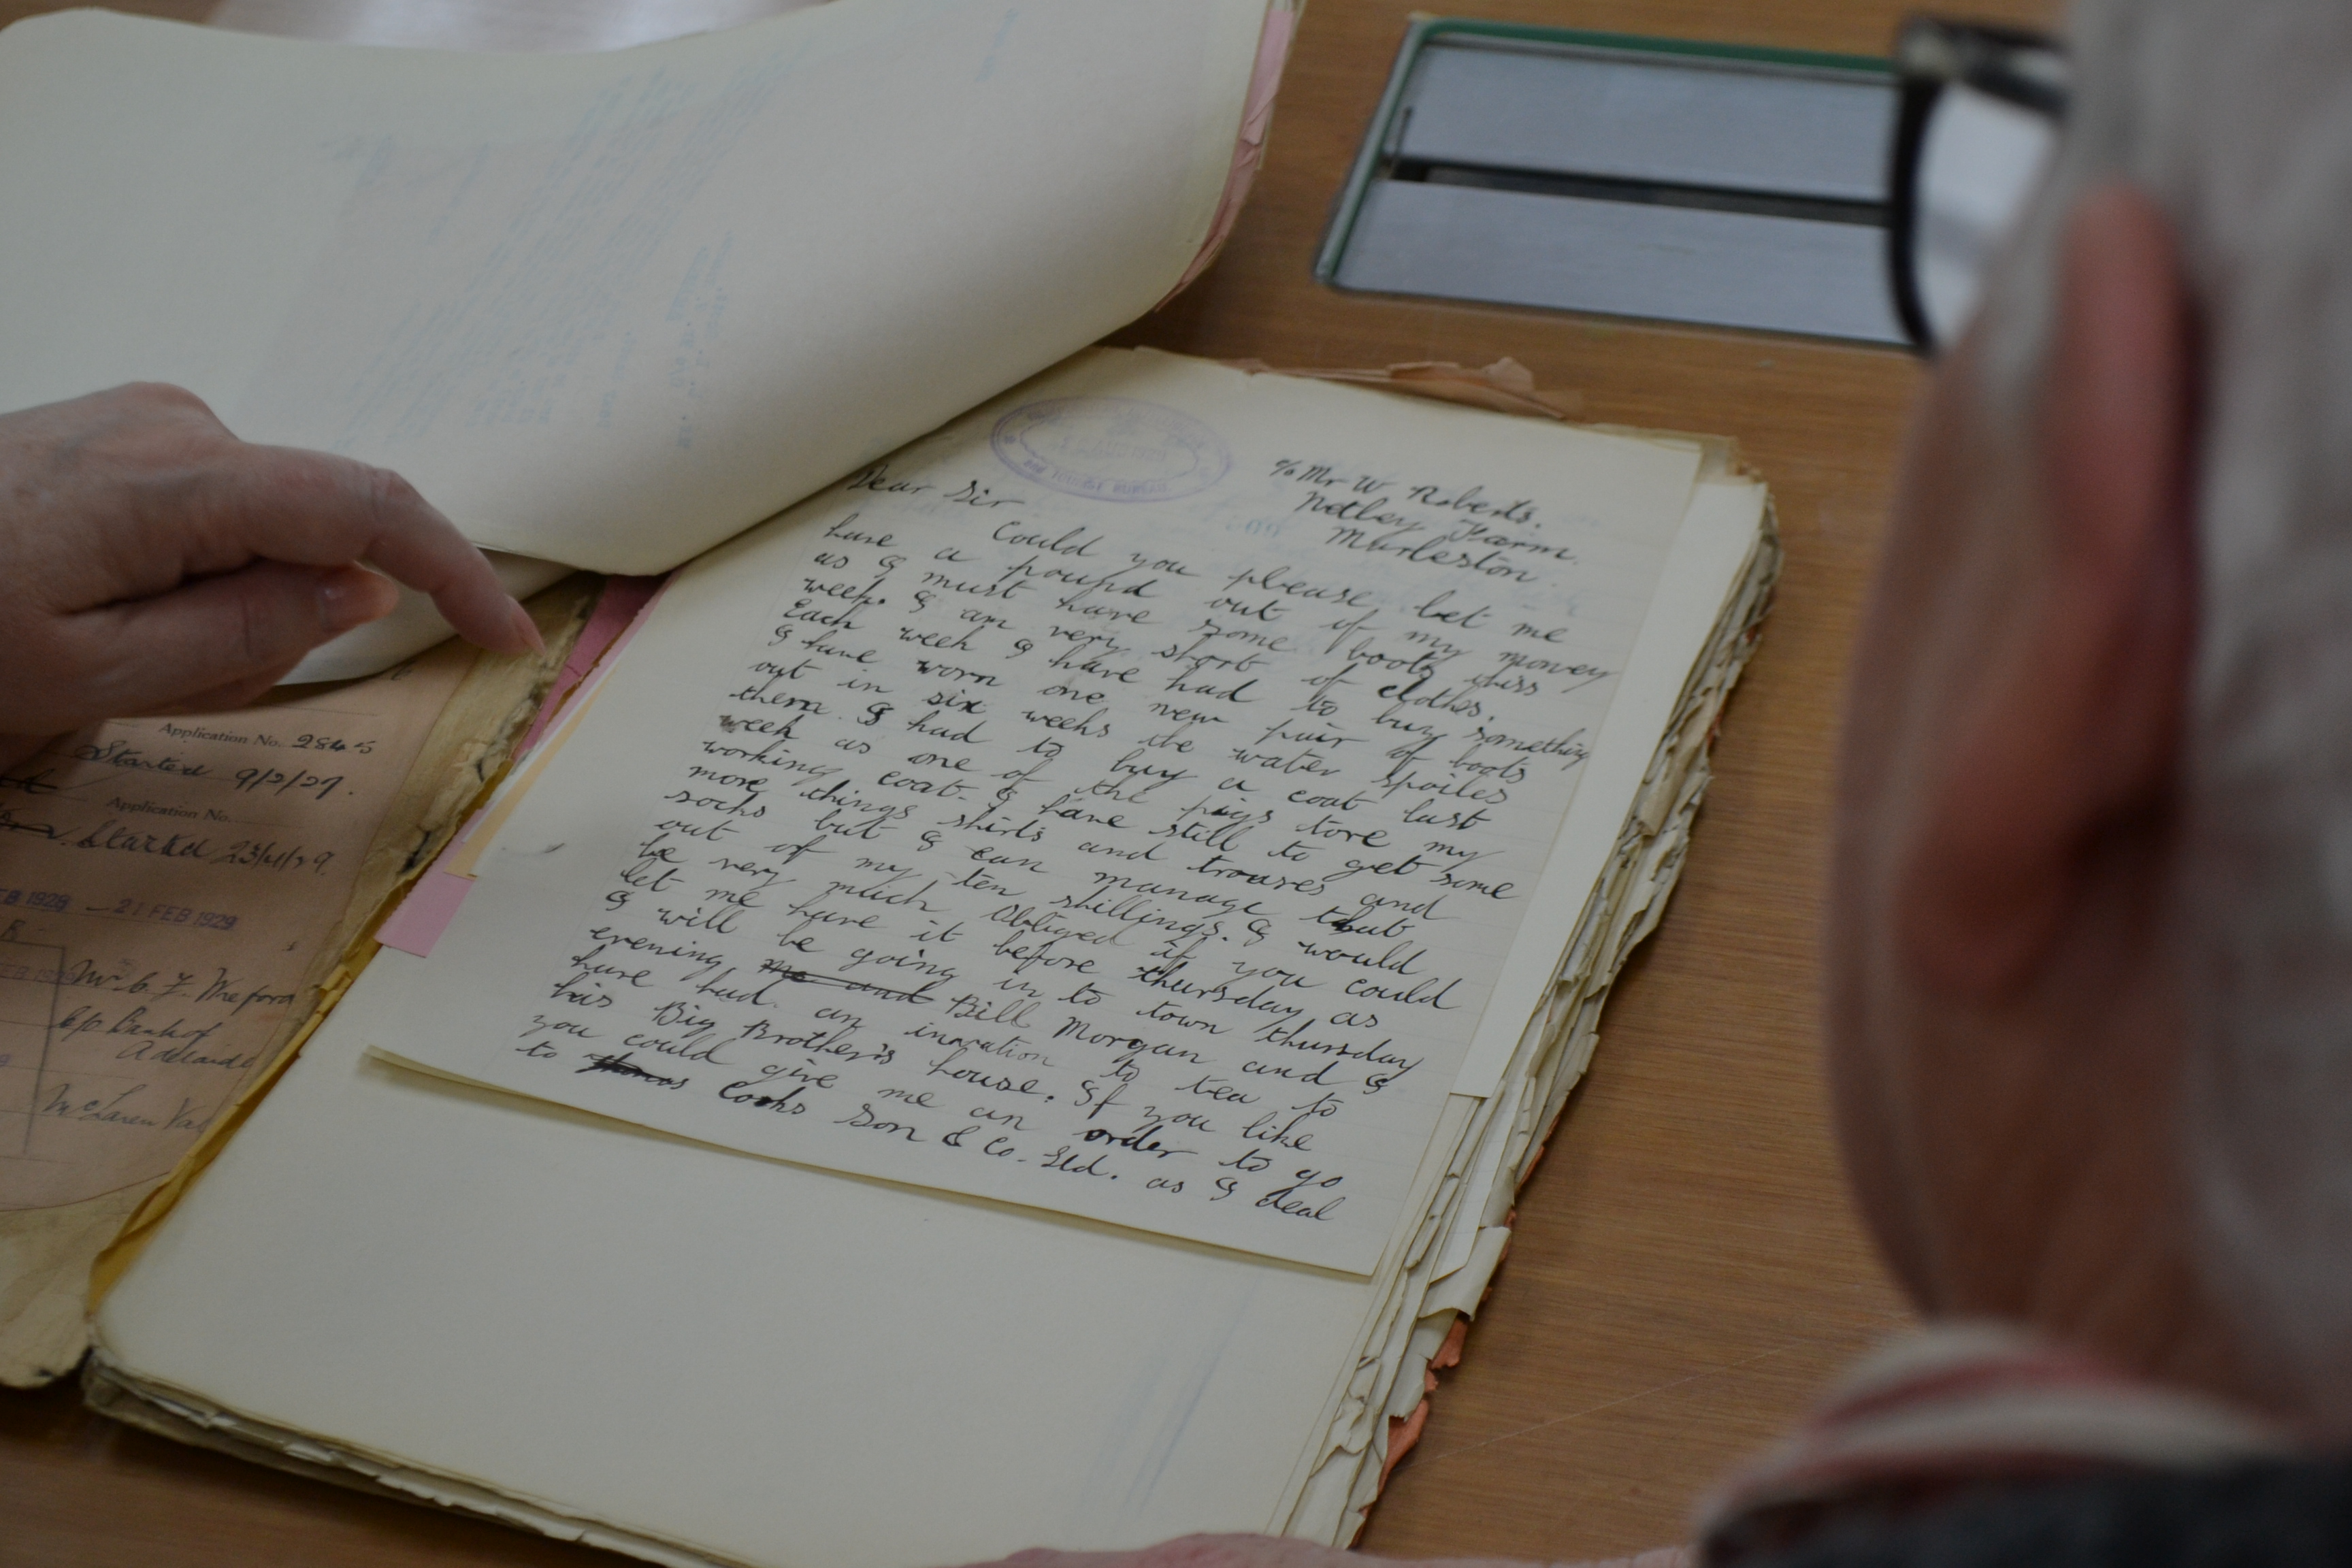 c/o Mr W Roberts.
Netley Farm
Marleston.
Dear Sir
Could you please let me
have a pound out of my money
as I must have some boots this
week. I am very short of clothes.
Each week I have had to buy something
I have worn one new pair of boots
out in six weeks the water spoiles
them. I had to buy a coat last
week as one of the pigs tore my
working coat. I have still to get some
more things shirts and trouses and
socks but I can manage that
out of my ten shillings. I would
be very much obliged if you could
let me have it before thursday as
I will be going in to town thursday
evening me and Bill Morgan and I
have had an inavation to tea to
his Big Brother's house. If you like
you could give me an order to go
to thomas Cooks Son & Co. Ltd. as I deal
Application No. 2845
Started 9/2/29.
Application No.
Started 23/4/29.
FEB 1929 - 21 FEB 1929
Adelaide
McLaren Val